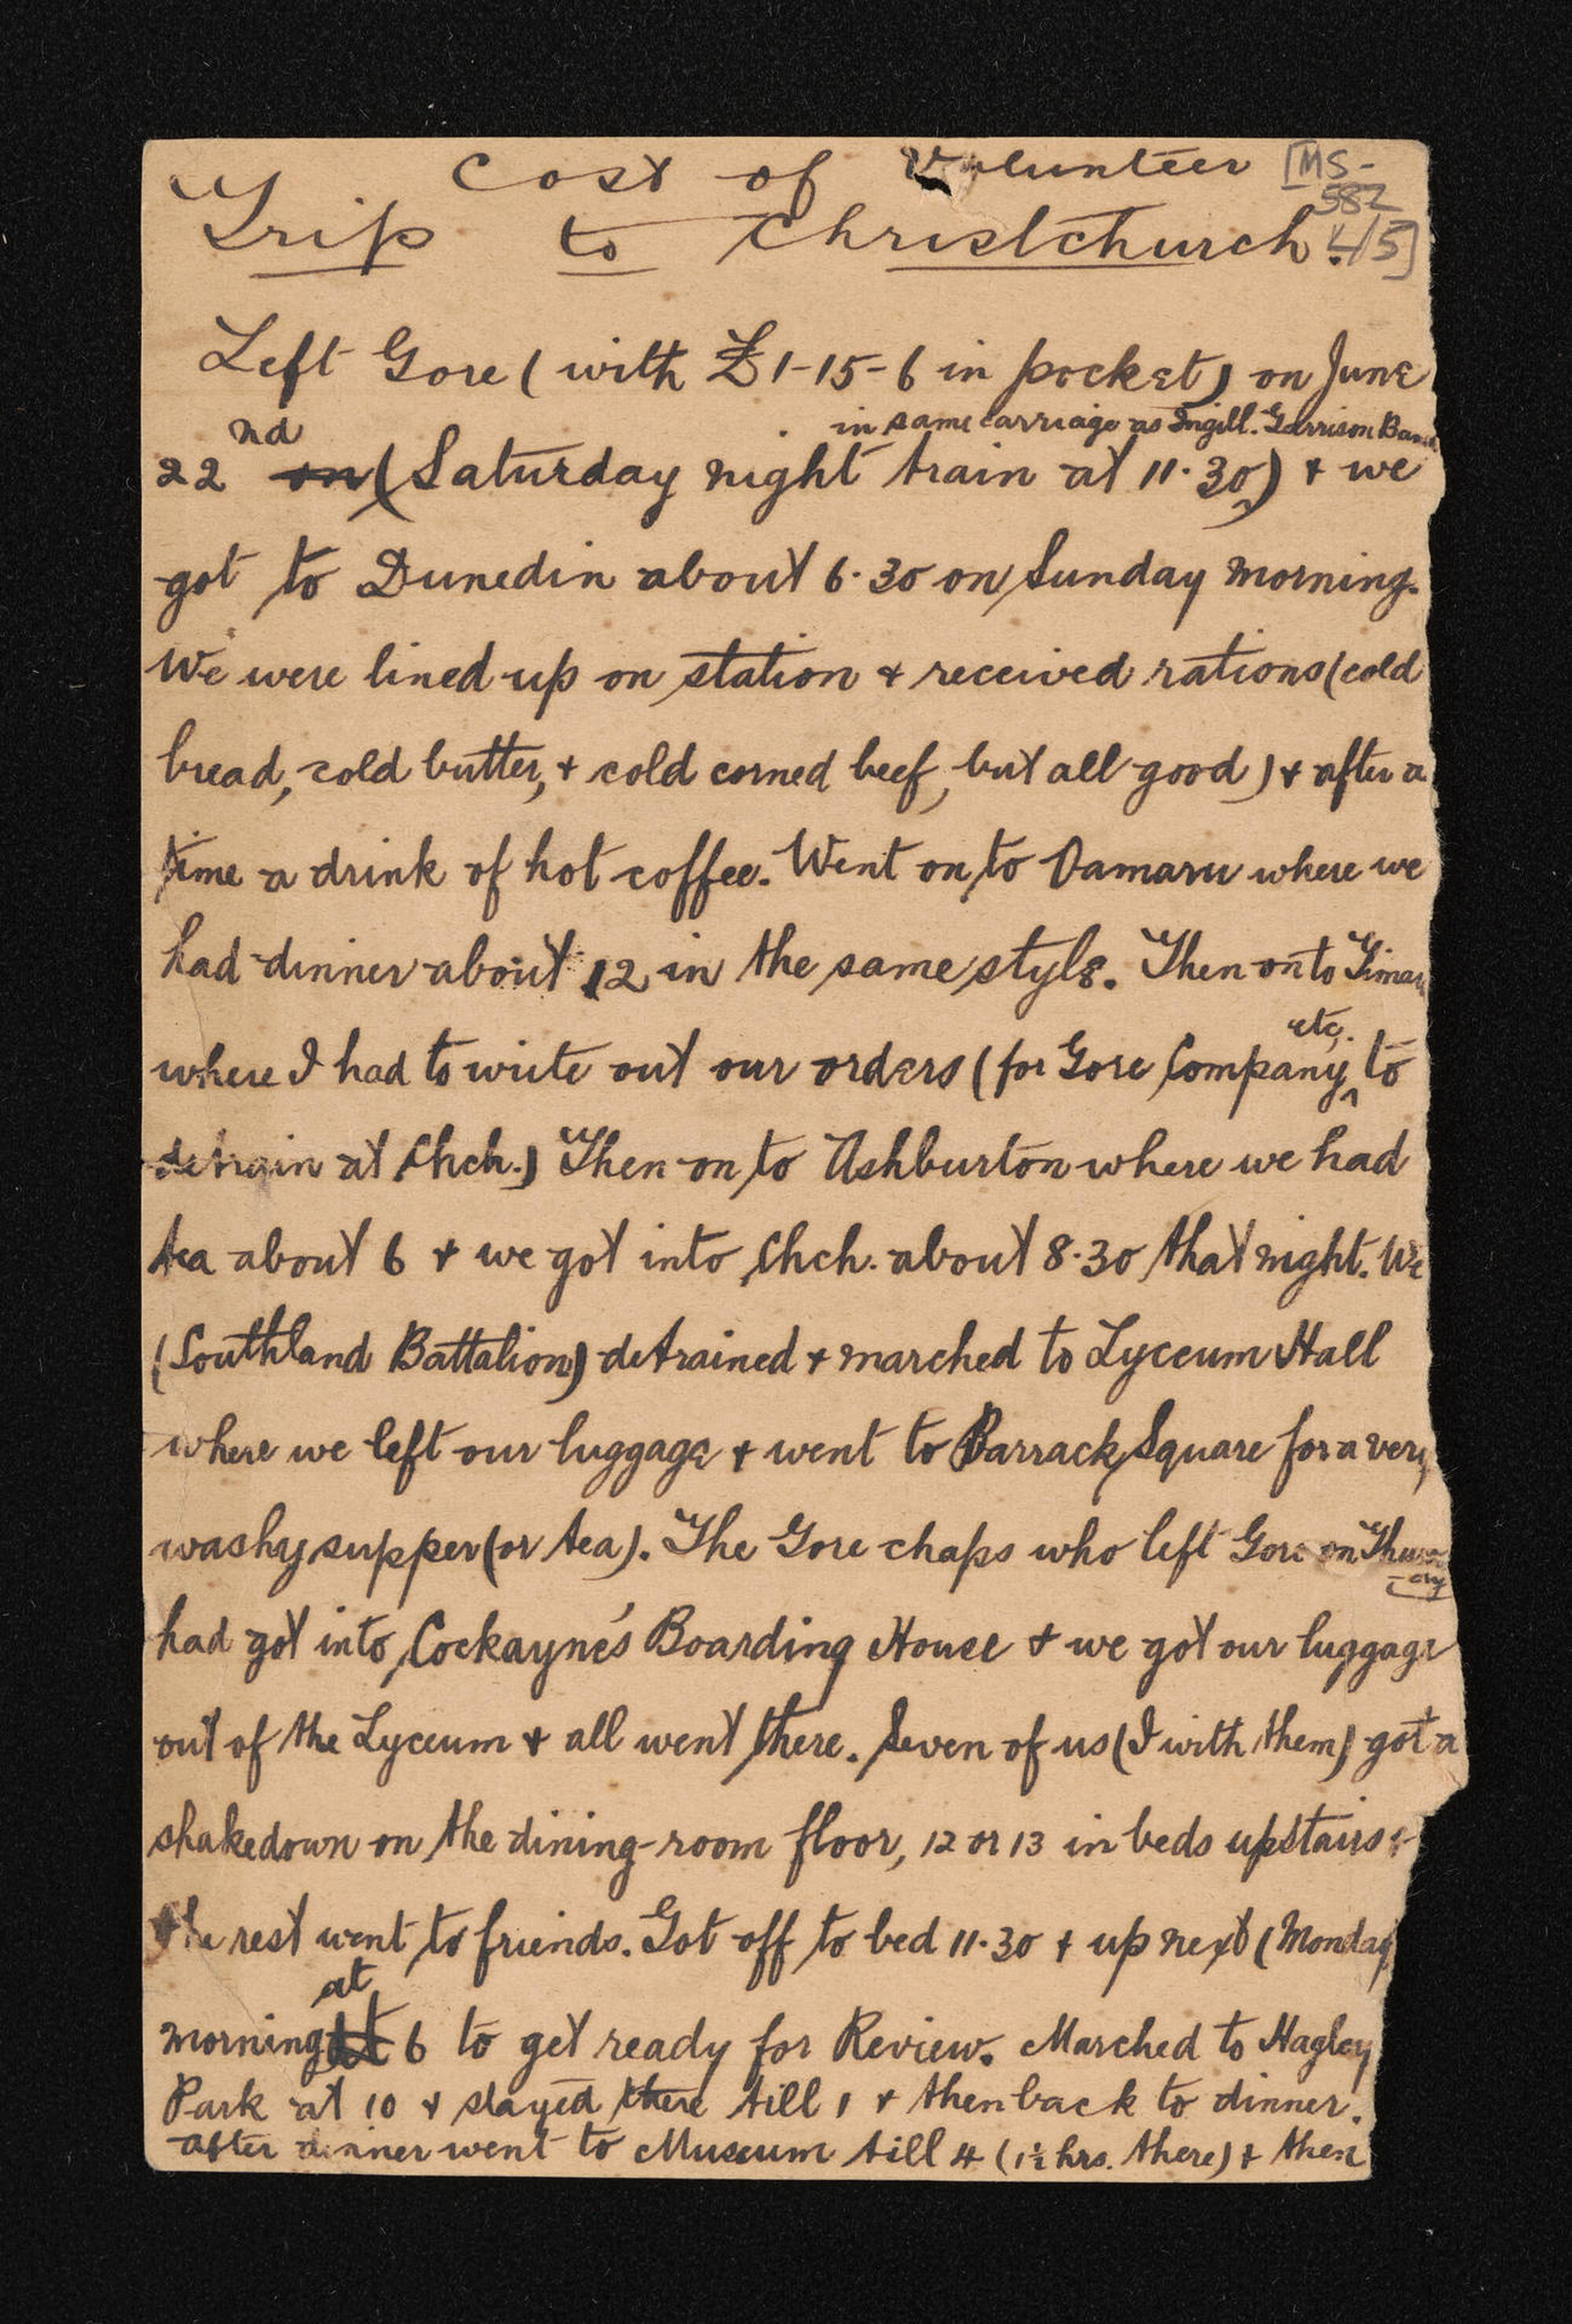 Cost of Volunteer [MS-
582
Trip to Christchurch. 4/5]
Left Gore ( with £1-15-6 in pocket) on June
in same carriage as Ingill. Garrison Band
22nd on (Saturday night train at 11·30) + we
got to Dunedin about 6·30 on Sunday morning.
We were lined up on station + received rations (cold
bread, cold butter, + cold corned beef, but all good) + after a
time a drink of hot coffee. Went on to Oamaru where we
had dinner about 12 in the same style. Then on to Timaru
etc.
where I had to write out our orders (for Gore Company ^ to
detrain at Chch.) Then on to Ashburton where we had
tea about 6 + we got into Chch. about 8·30 that night. We
(Southland Battalion) detrained + marched to Lyceum Hall
where we left our luggage + went to Barrack Square for a very
washy supper (or tea). The Gore chaps who left Gore on Thurs
-day
had got into Cockayne's Boarding House + we got our luggage
out of the Lyceum + all went there. Seven of us (I with them) got a
shakedown on the dining-room floor, 12 or 13 in beds upstairs +
the rest went to friends. Got off to bed 11·30 + up next (Monday
at
morning at 6 to get ready for Review. Marched to Hagley
Park at 10 + stayed there till 1 + then back to dinner.
After dinner went to Museum till 4 (1½ hrs. there) + then